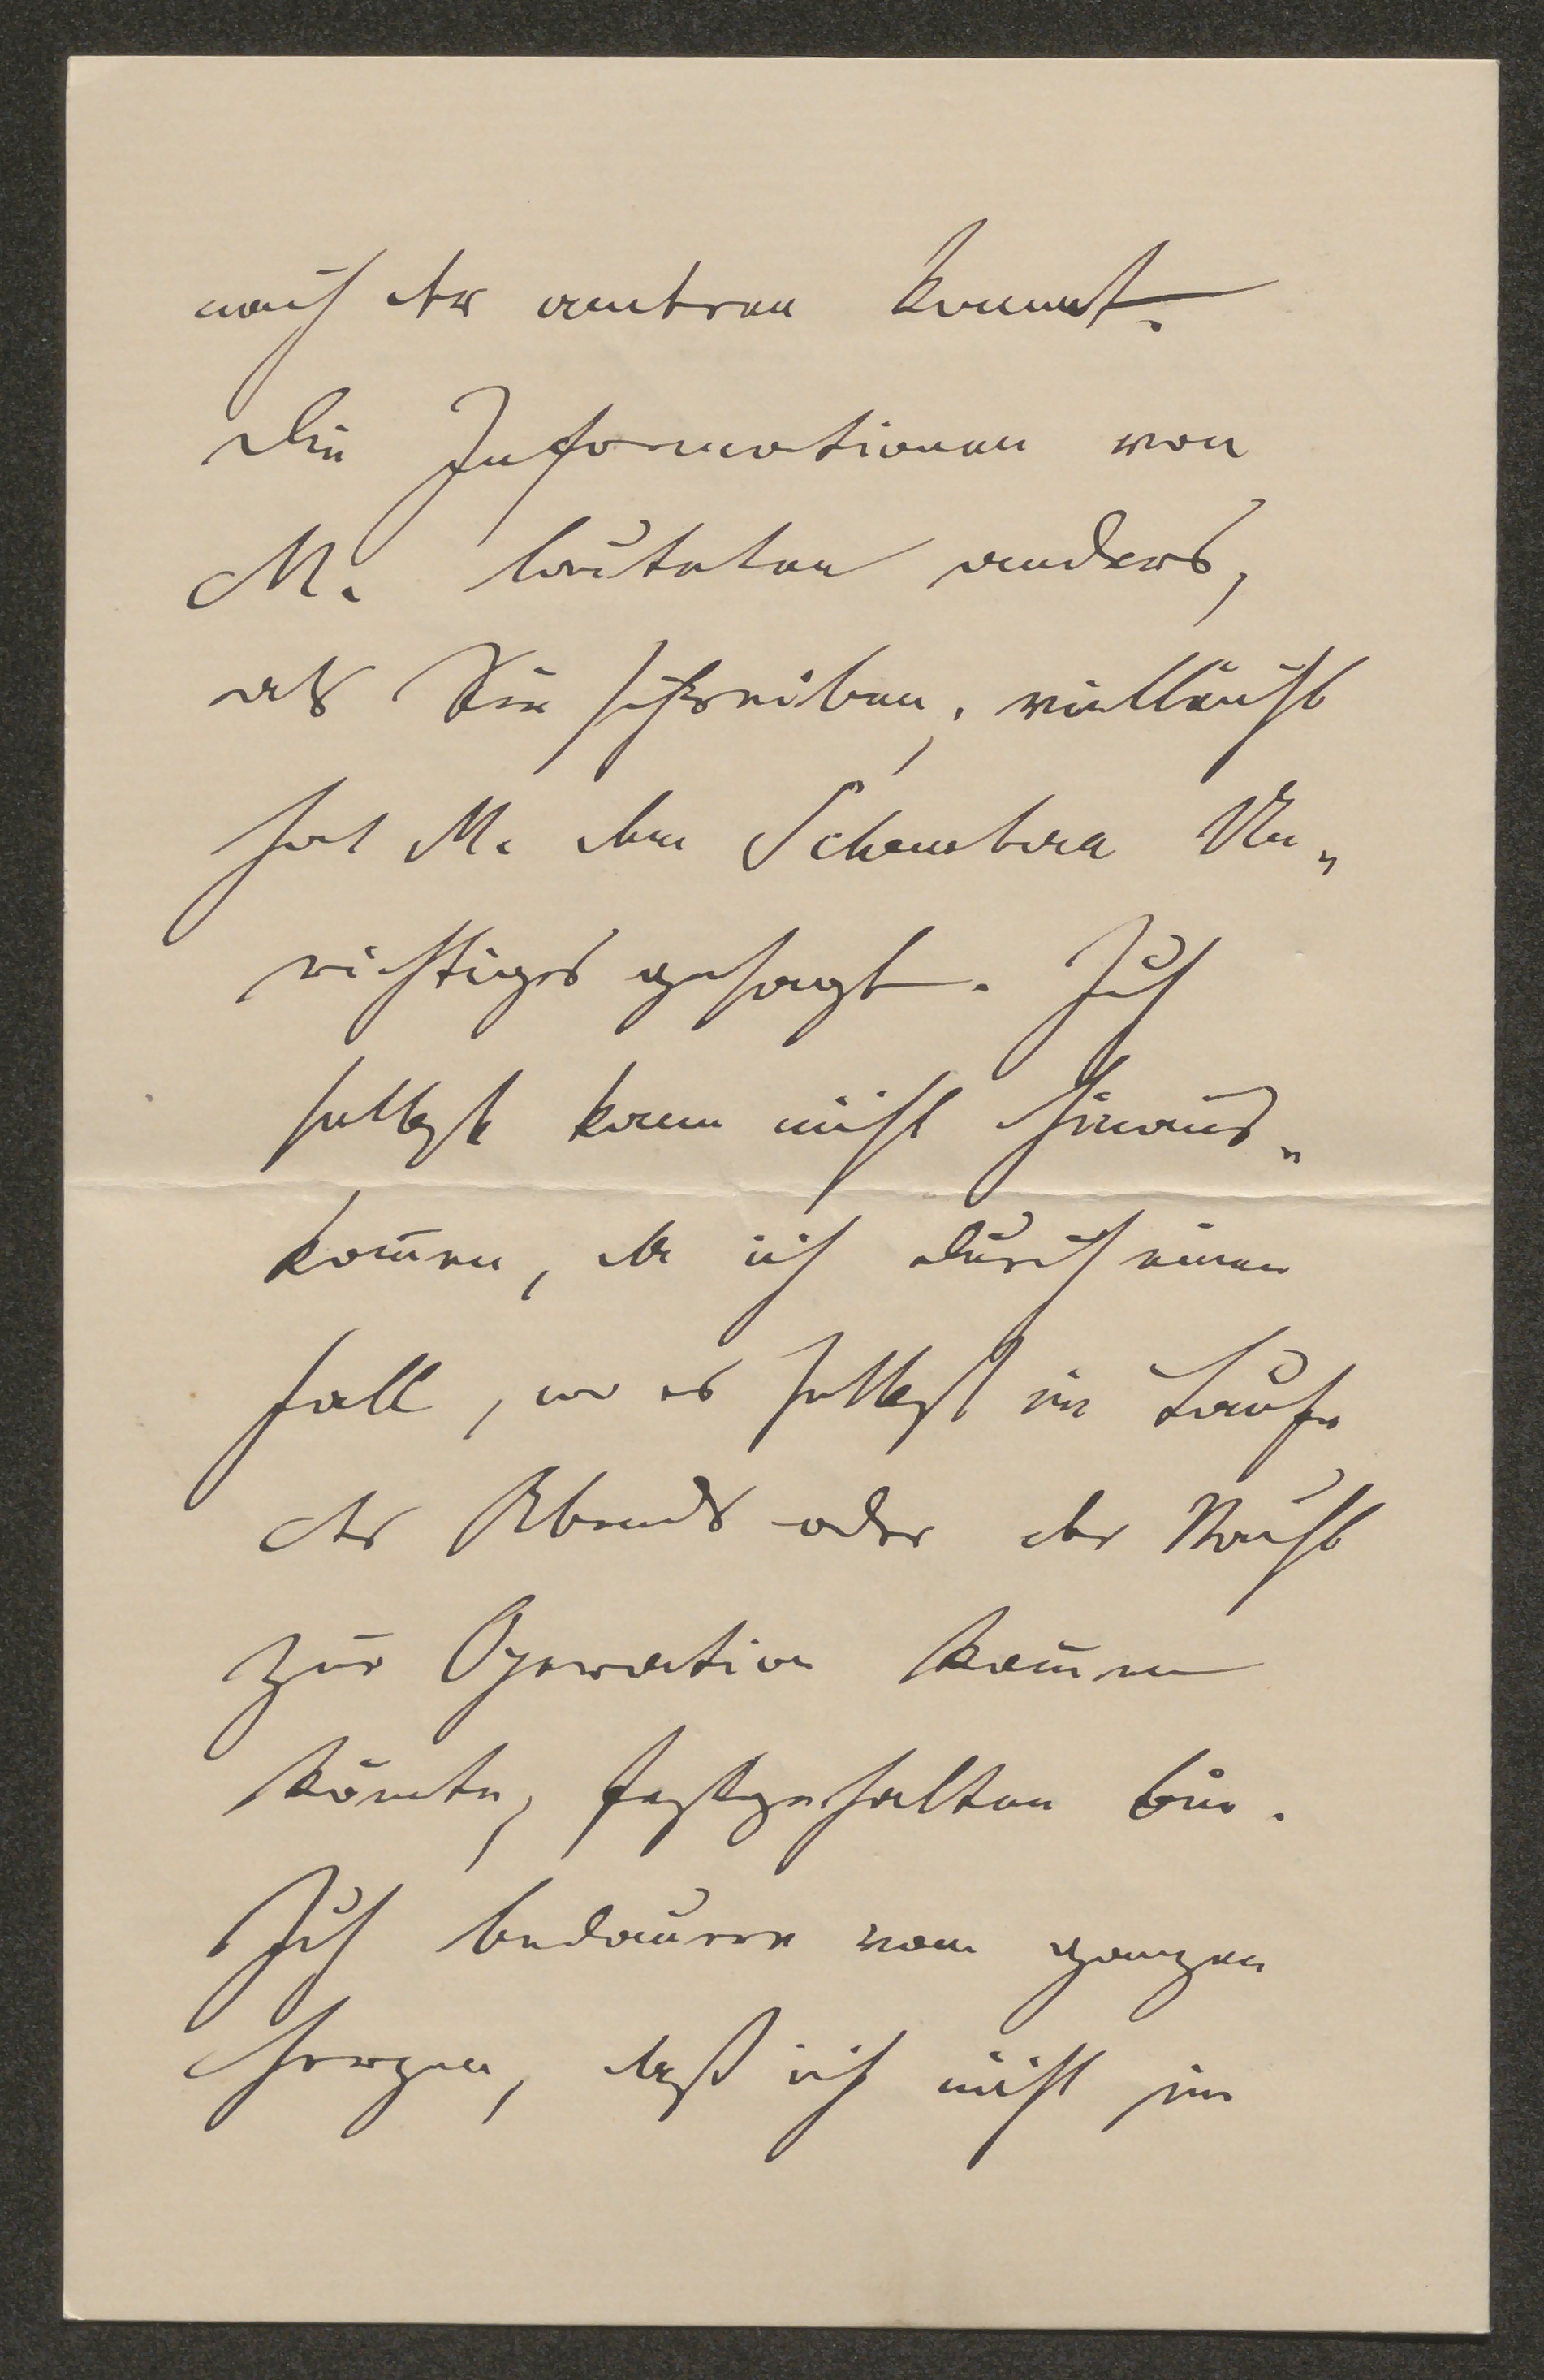 nach der anderen kommt.
Die Informationen von
M. lauteten anders,
als Sie schreiben; vielleicht
hat M. dem Schambera Un„
richtiges gesagt. Ich
selbst kann nicht hinaus„
kom̅en, da ich durch einen
Fall, wo es selbst im Laufe
des Abends oder der Nacht
zur Operation kom̅en
könnte, festgehalten bin.
Ich bedauere vom ganzen
Herzen, daß ich nicht im